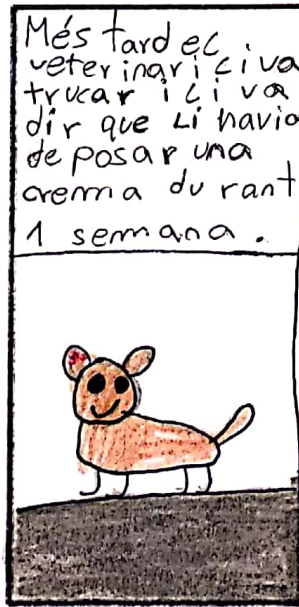 Més tard el
veterinari li va
trucar i li va
dir que li havia
de posar una
crema durant
1 semana.